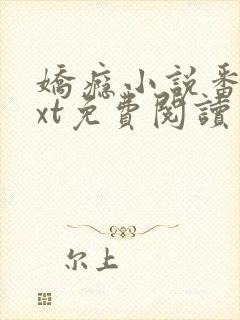 嬌癮小說番
xt免費閱讀
尔上